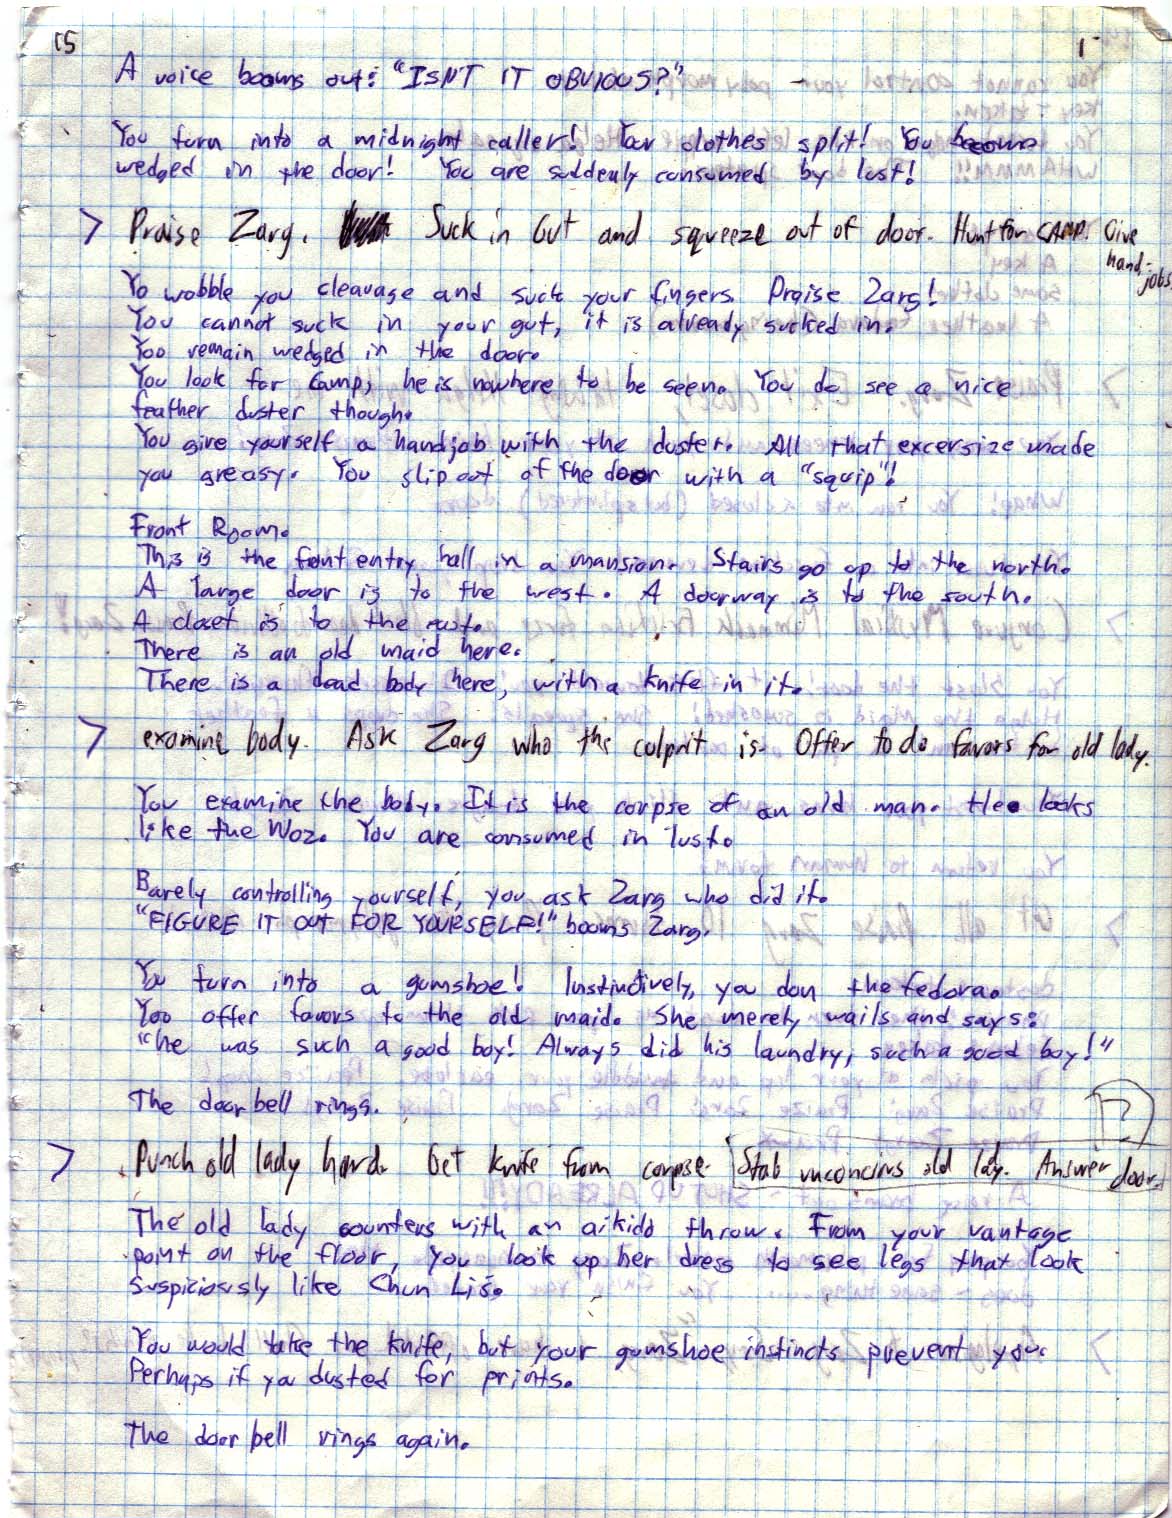 15
A voice booms out: "ISNT IT OBVIOUS?"
You turn into a midnight caller! Your clothes split! You become
wedged in the door! You are suddenly consumed by lust!
> Praise Zarg. Suck in Gut and squeeze out of door. Hunt for CAMP. Give
hand-
jobs.
Yo wobble you cleavage and suck your fingers. Praise Zarg!
You cannot suck in your gut, it is already sucked in.
You remain wedged in the door.
You look for Camp, he is nowhere to be seen. You do see a nice
feather duster though.
You give yourself a handjob with the duster. All that excersize made
you greasy. You slip out of the door with a "squip"!
Front Room.
This is the front entry hall in a mansion. Stairs go up to the north.
A large door is to the west. A doorway is to the south.
A closet is to the east.
There is an old maid here.
There is a dead body here, with a knife in it.
> examine body. Ask Zarg who the culprit is. Offer to do favors for old lady.
You examine the body. It is the corpse of an old man. He looks
like the Woz. You are consumed in lust.
Barely controlling yourself, you ask Zarg who did it.
"FIGURE IT OUT FOR YOURSELF!" booms Zarg.
You turn into a gumshoe! Instinctively, you don the fedora.
You offer favors to the old maid. She merely wails and says:
"he was such a good boy! Always did his laundry, such a good boy!"
The doorbell rings.
> Punch old lady hard. Get knife from corpse. Stab unconcins old lady. Answer door.
The old lady counters with an aikido throw. From your vantage
point on the floor, you look up her dress to see legs that look
suspiciously like Chun Li's.
You would take the knife, but your gumshoe instincts prevent you.
Perhaps if you dusted for prints.
The door bell rings again.